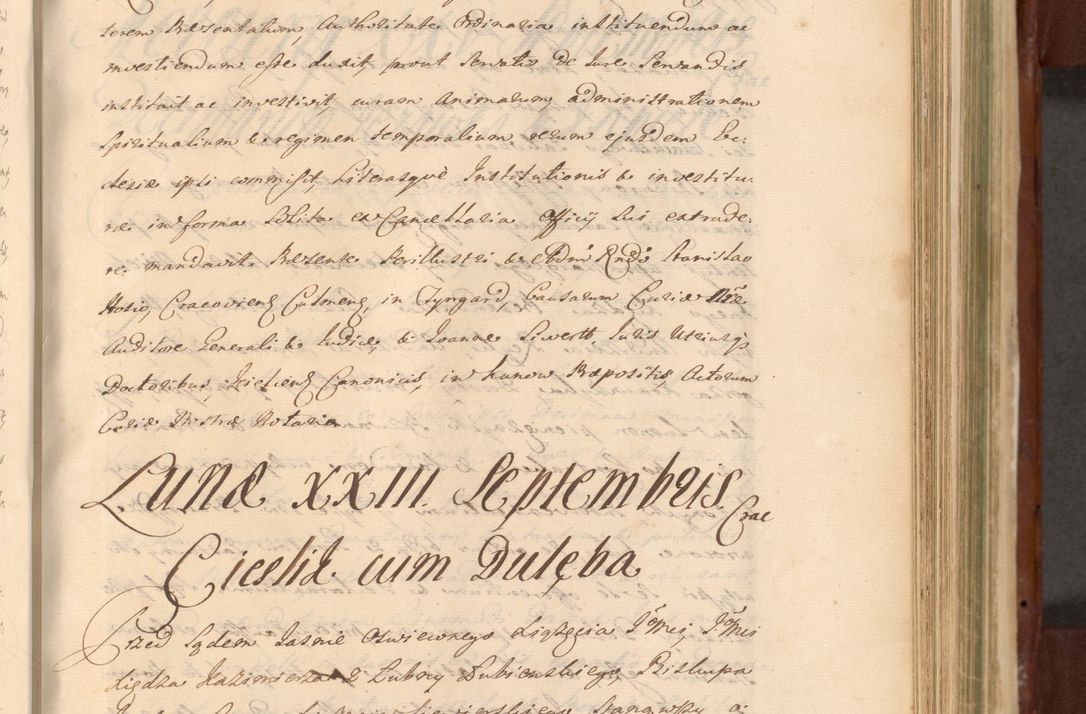 torem Præsentatum, Authoritate Ordinaria instituendum ac
investiendum esse duxit, prout servatis de Iure servandis
instituit ac investivit, curam Animarum, administrationem
Spiritualium & regimen temporalium rerum ejusdem Ec:
clesiæ ipsi commisit, Literasquè Institutionis & investitu:
ræ in forma solita ex Cancellaria Officij sui extrade:
re mandavit. Præsente Perillustri & Rndo Stanislao
Hosio, Cracovien Culmen, in Causarum Curiæ Nræ
Auditore Generali & Iudice, & Ioanne Siwertt, Iuris Utriusq
Doctoribus, Kielcien Canonicis, in Kunow Præpositis, Actorum
Curiæ Nostræ Notario
Lunæ XXIII. Septembris. Crac
Cieslik cum Dulęba
Przed Sądem Iasnie Oswieconego Xiążęcia
Xiędza Kazimierza z Łubny Łubienskiego, Biskupa